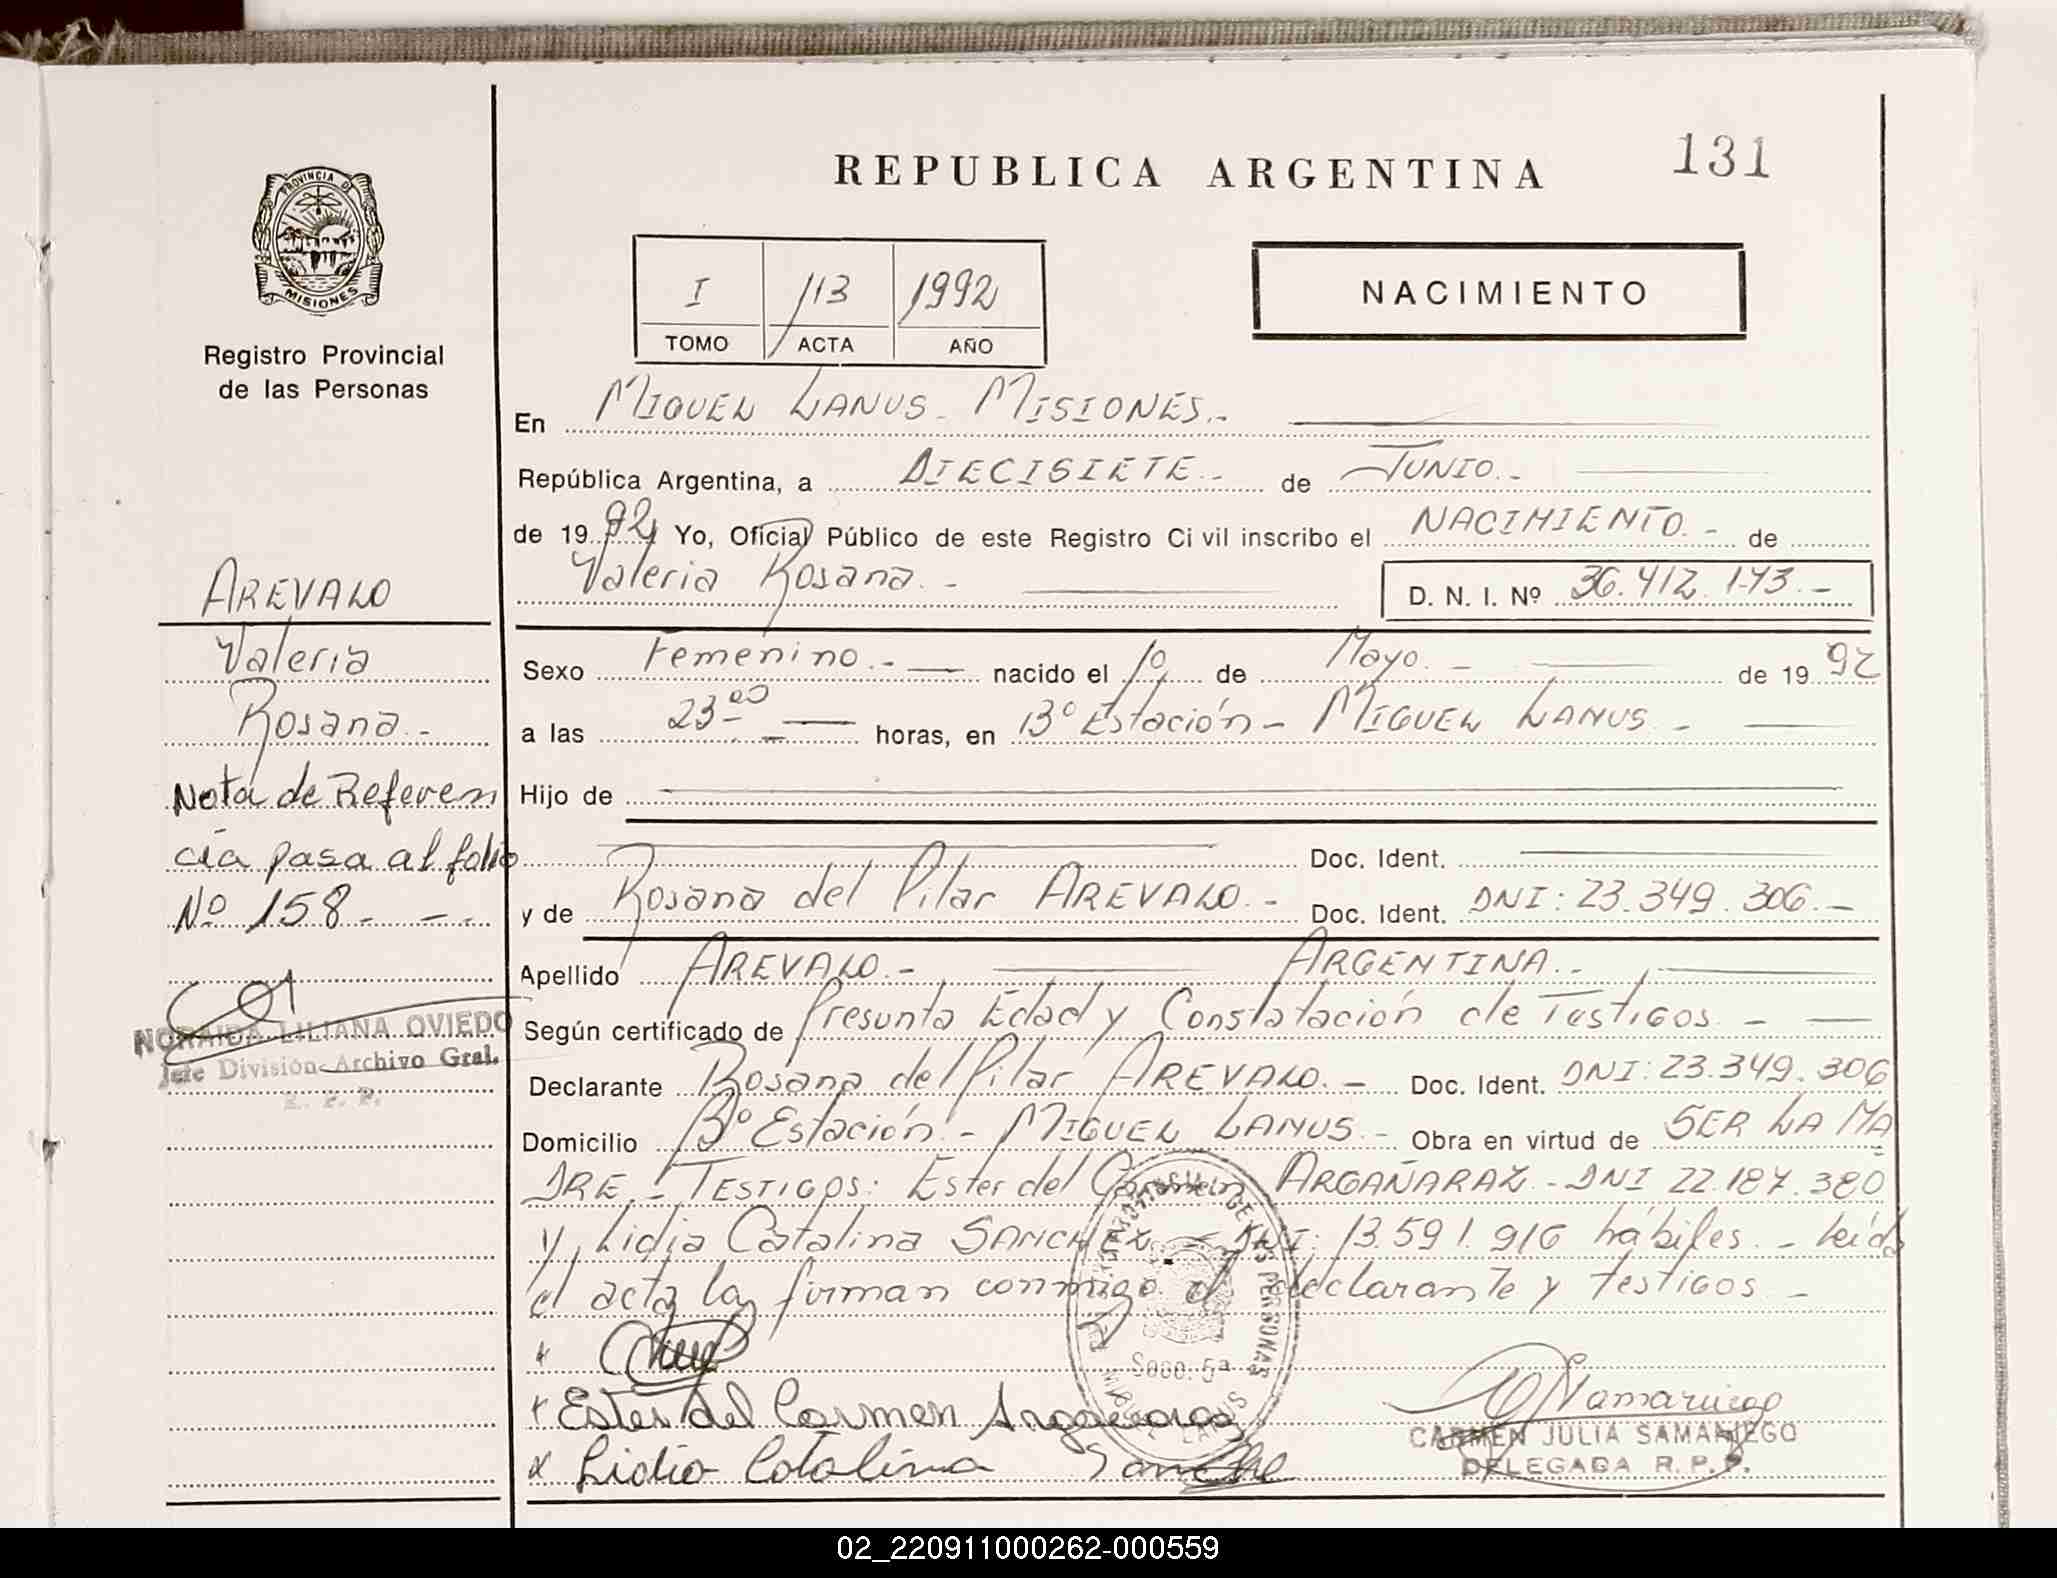 REPUBLICA ARGENTINA
131
PROVINCIA DE
MISIONES
Registro Provincial
de las Personas
I 113 1992
TOMO ACTA AÑO
NACIMIENTO
En MIGUEL LANUS - MISIONES.-
República Argentina, a DIECISIETE.- de JUNIO.-
de 19 92 Yo, Oficial Público de este Registro Civil inscribo el NACIMIENTO.- de
Valeria Rosana.- D. N. I. Nº 36.412.173.-
Sexo Femenino.- nacido el 1º de Mayo.- de 19 92
a las 23 00 horas, en Bº Estación - MIGUEL LANUS.-
Hijo de
Doc. Ident.
y de Rosana del Pilar AREVALO.- Doc. Ident. DNI: 23.349.306.-
Apellido AREVALO.- ARGENTINA.-
Según certificado de Presunta Edad y Constatación de Testigos.-
Declarante Rosana del Pilar AREVALO.- Doc. Ident. DNI: 23.349.306
Domicilio Bº Estación.- MIGUEL LANUS.- Obra en virtud de SER LA MA
DRE.- TESTIGOS: Ester del Carmen ARGAÑARAZ.- DNI 22.187.380
y Lidia Catalina SANCHEZ - DNI: 13.591.916 hábiles.- Leída
el acta la firman conmigo el declarante y testigos.-
Ester del Carmen Argañaraz
Lidia Catalina Sanche
Secc. 5ª
PERSONAS
MIGUEL LANUS
Samaniego
CARMEN JULIA SAMANIEGO
DELEGADA R. P. P.
AREVALO
Valeria
Rosana.-
Nota de Referen
cia pasa al folio
Nº 158.- -.-
NORAIDA LILIANA OVIEDO
Jefe División Archivo Gral.
R. P. P.
02_220911000262-000559